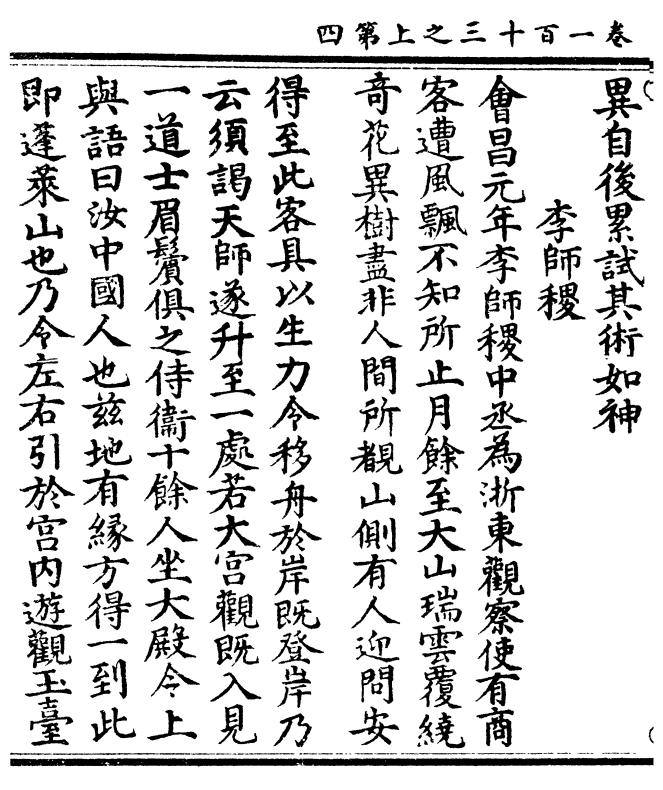 卷一百十三之上第四
異自後累試其術如神
李師稷
會昌元年李師稷中丞為浙東觀察使有商
客遭風飄不知所止月餘至大山瑞雲覆繞
奇花異樹盡非人間所覩山側有人迎問安
得至此客具以生力令移舟於岸既登岸乃
云須謁天師遂升至一處若大宮觀既入見
一道士眉鬢俱之侍衞十餘人坐大殿令上
與語曰汝中國人也茲地有緣方得一到此
即蓬萊山也乃令左右引於宮內遊觀玉臺